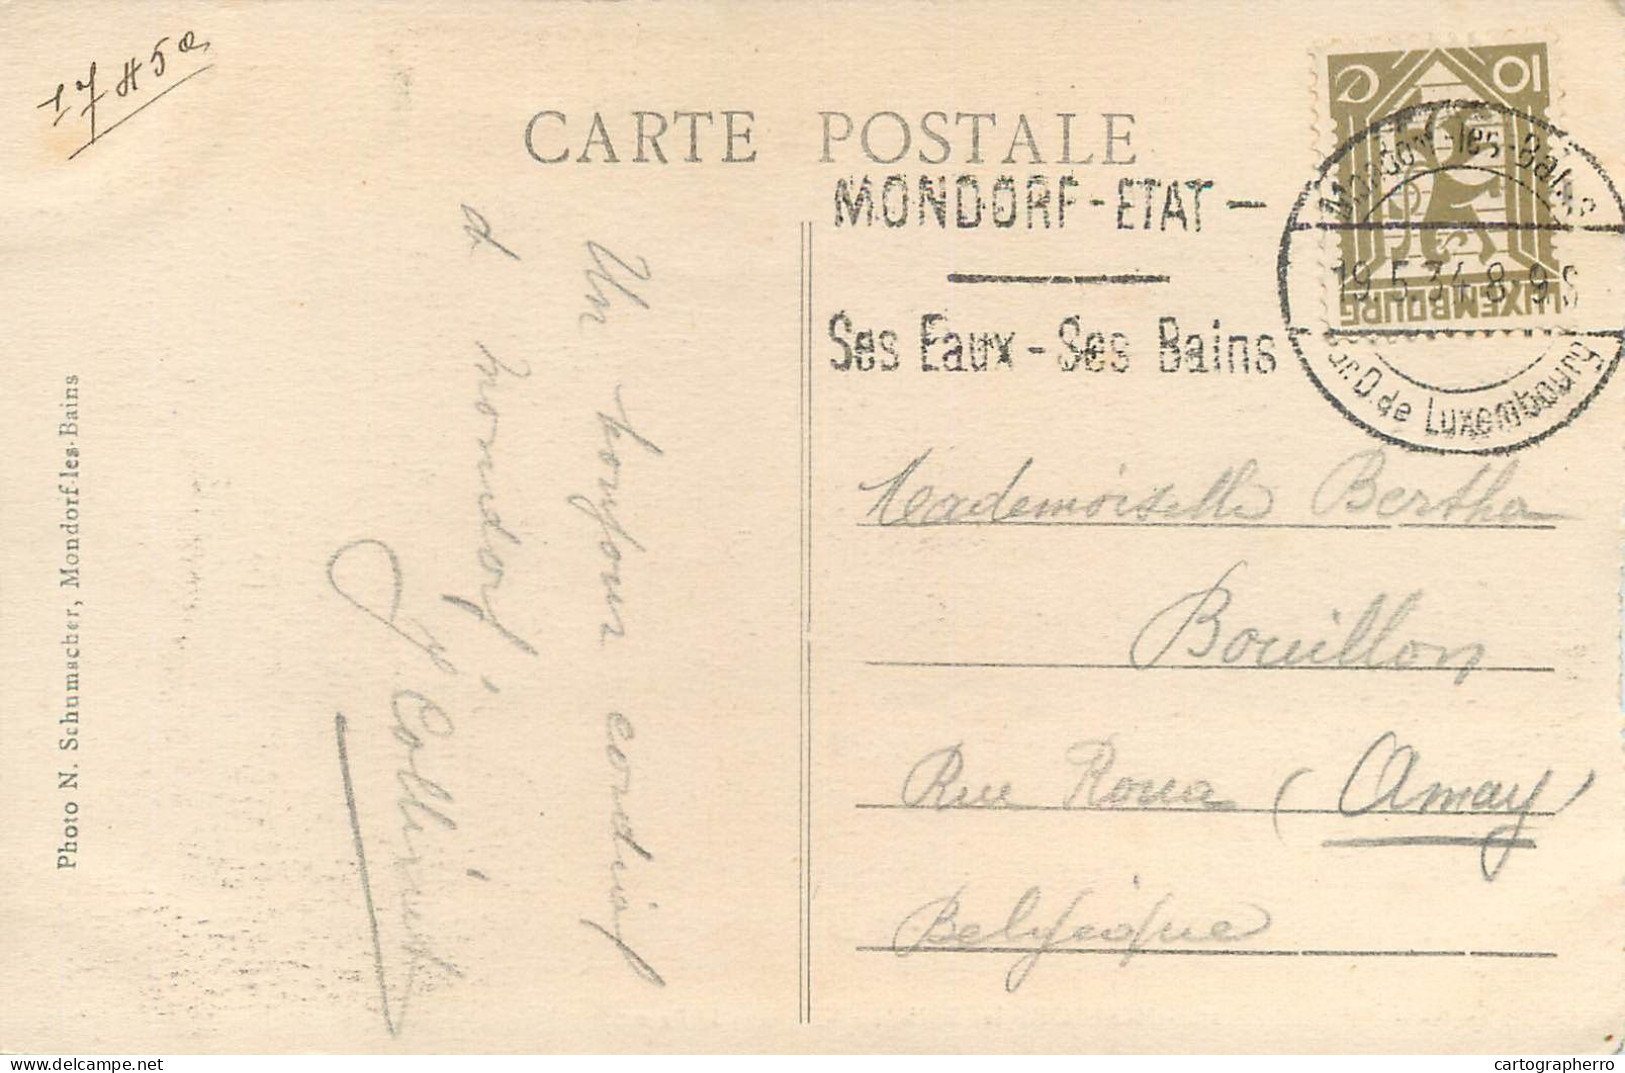 17 H 5a
CARTE POSTALE
MONDORF-ETAT-
Ses Eaux-Ses Bains
Mondorf-les-Bains
19.5.34.8-9 S
Gr.D.de Luxembourg
10 C
LUXEMBOURG
Photo N. Schumacher, Mondorf les-Bains
Un bonjour cordial
d Mondorf
Mademoiselle Bertha
Bouillon
Rue (Amay)
Belgique
cartographerro